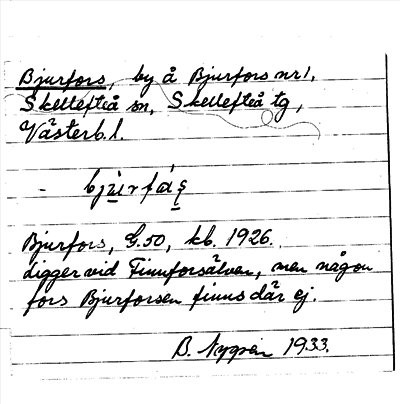 Bjurfors, by å Bjurfors nr 1,
Skellefteå sn, Skellefteå tg,
Västerb. l.
Bjurfors, G.50, kb. 1926.
ligger vid Finnforsälven, men någon
fors Bjurforsen finns där ej.
B. Nygren 1933.